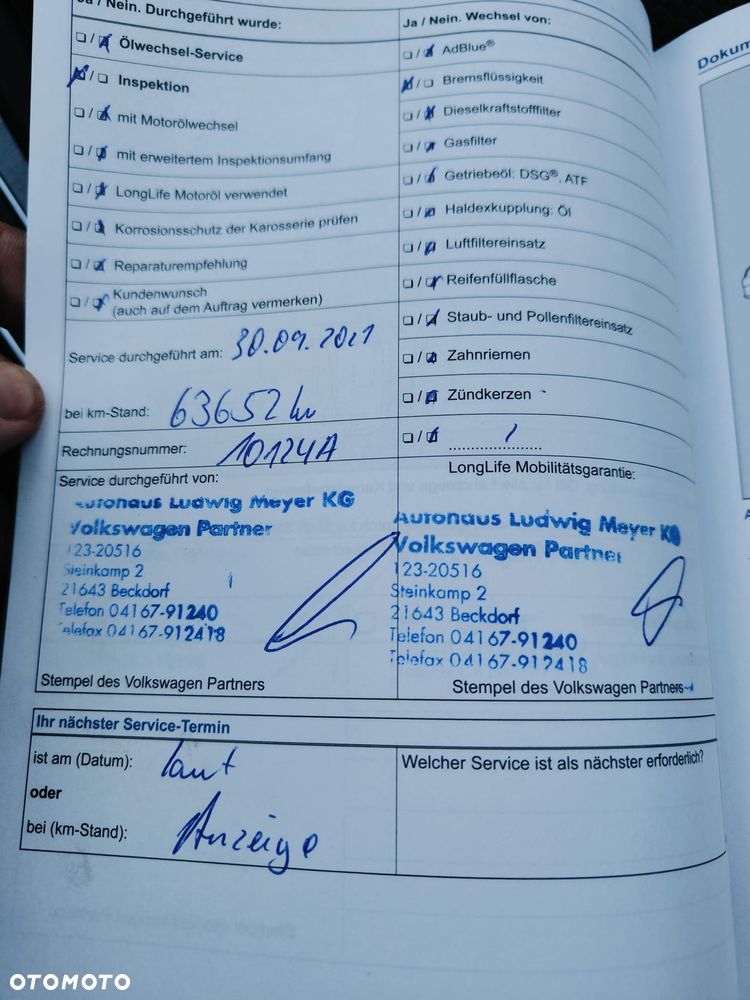 Ja / Nein. Durchgeführt wurde:
Ölwechsel-Service
Inspektion
mit Motorölwechsel
mit erweitertem Inspektionsumfang
LongLife Motoröl verwendet
Korrosionsschutz der Karosserie prüfen
Reparaturempfehlung
Kundenwunsch
(auch auf dem Auftrag vermerken)
Service durchgeführt am: 30.09.2021
bei km-Stand: 63652 km
Rechnungsnummer: 10124A
Ja / Nein. Wechsel von:
AdBlue®
Bremsflüssigkeit
Dieselkraftstofffilter
Gasfilter
Getriebeöl: DSG®, ATF
Haldexkupplung: Öl
Luftfiltereinsatz
Reifenfüllflasche
Staub- und Pollenfiltereinsatz
Zahnriemen
Zündkerzen
Service durchgeführt von:
Autohaus Ludwig Meyer KG
Volkswagen Partner
123-20516
Steinkamp 2
21643 Beckdorf
Telefon 04167-91240
Telefax 04167-912418
Stempel des Volkswagen Partners
LongLife Mobilitätsgarantie:
Autohaus Ludwig Meyer KG
Volkswagen Partner
123-20516
Steinkamp 2
21643 Beckdorf
Telefon 04167-91240
Telefax 04167-912418
Stempel des Volkswagen Partners
Ihr nächster Service-Termin
ist am (Datum): laut
oder
bei (km-Stand): Anzeige
Welcher Service ist als nächster erforderlich?
Dokum
OTOMOTO